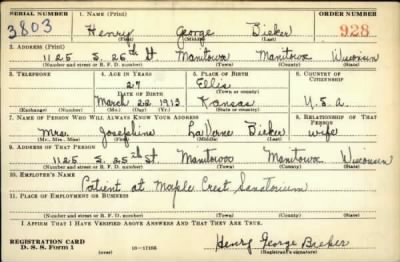 SERIAL NUMBER 1. NAME (Print) ORDER NUMBER
3803 Henry George Dieker 928
(First) (Middle) (Last)
2. ADDRESS (Print)
1125 S. 25th St. Manitowoc Manitowoc Wisconsin
(Number and street or R. F. D. number) (Town) (County) (State)
3. TELEPHONE 4. AGE IN YEARS 5. PLACE OF BIRTH 6. COUNTRY OF CITIZENSHIP
27 Ellis
DATE OF BIRTH (Town or county)
March 22 1913 Kansas U.S.A.
(Exchange) (Number) (Mo.) (Day) (Yr.) (State or country)
7. NAME OF PERSON WHO WILL ALWAYS KNOW YOUR ADDRESS 8. RELATIONSHIP OF THAT PERSON
Mrs. Josephine LaVane Dieker wife
(Mr., Mrs., Miss) (First) (Middle) (Last)
9. ADDRESS OF THAT PERSON
1125 S. 25th St Manitowoc Manitowoc Wisconsin
(Number and street or R. F. D. number) (Town) (County) (State)
10. EMPLOYER'S NAME
Patient at Maple Crest Sanatorium
11. PLACE OF EMPLOYMENT OR BUSINESS
(Number and street or R. F. D. number) (Town) (County) (State)
I AFFIRM THAT I HAVE VERIFIED ABOVE ANSWERS AND THAT THEY ARE TRUE.
REGISTRATION CARD
D. S. S. Form 1 (over) Henry George Dieker
(Registrant's signature)